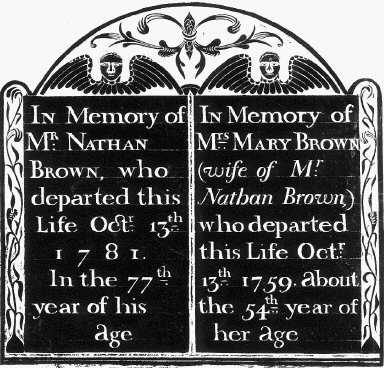 In Memory of
Mr. Nathan
Brown, who
departed this
Life Octr. 13th
1781.
In the 77th
year of his
age
In Memory of
Mrs Mary Brown
(wife of Mr.
Nathan Brown)
who departed
this Life Octr.
13th 1759. about
the 54th year of
her age